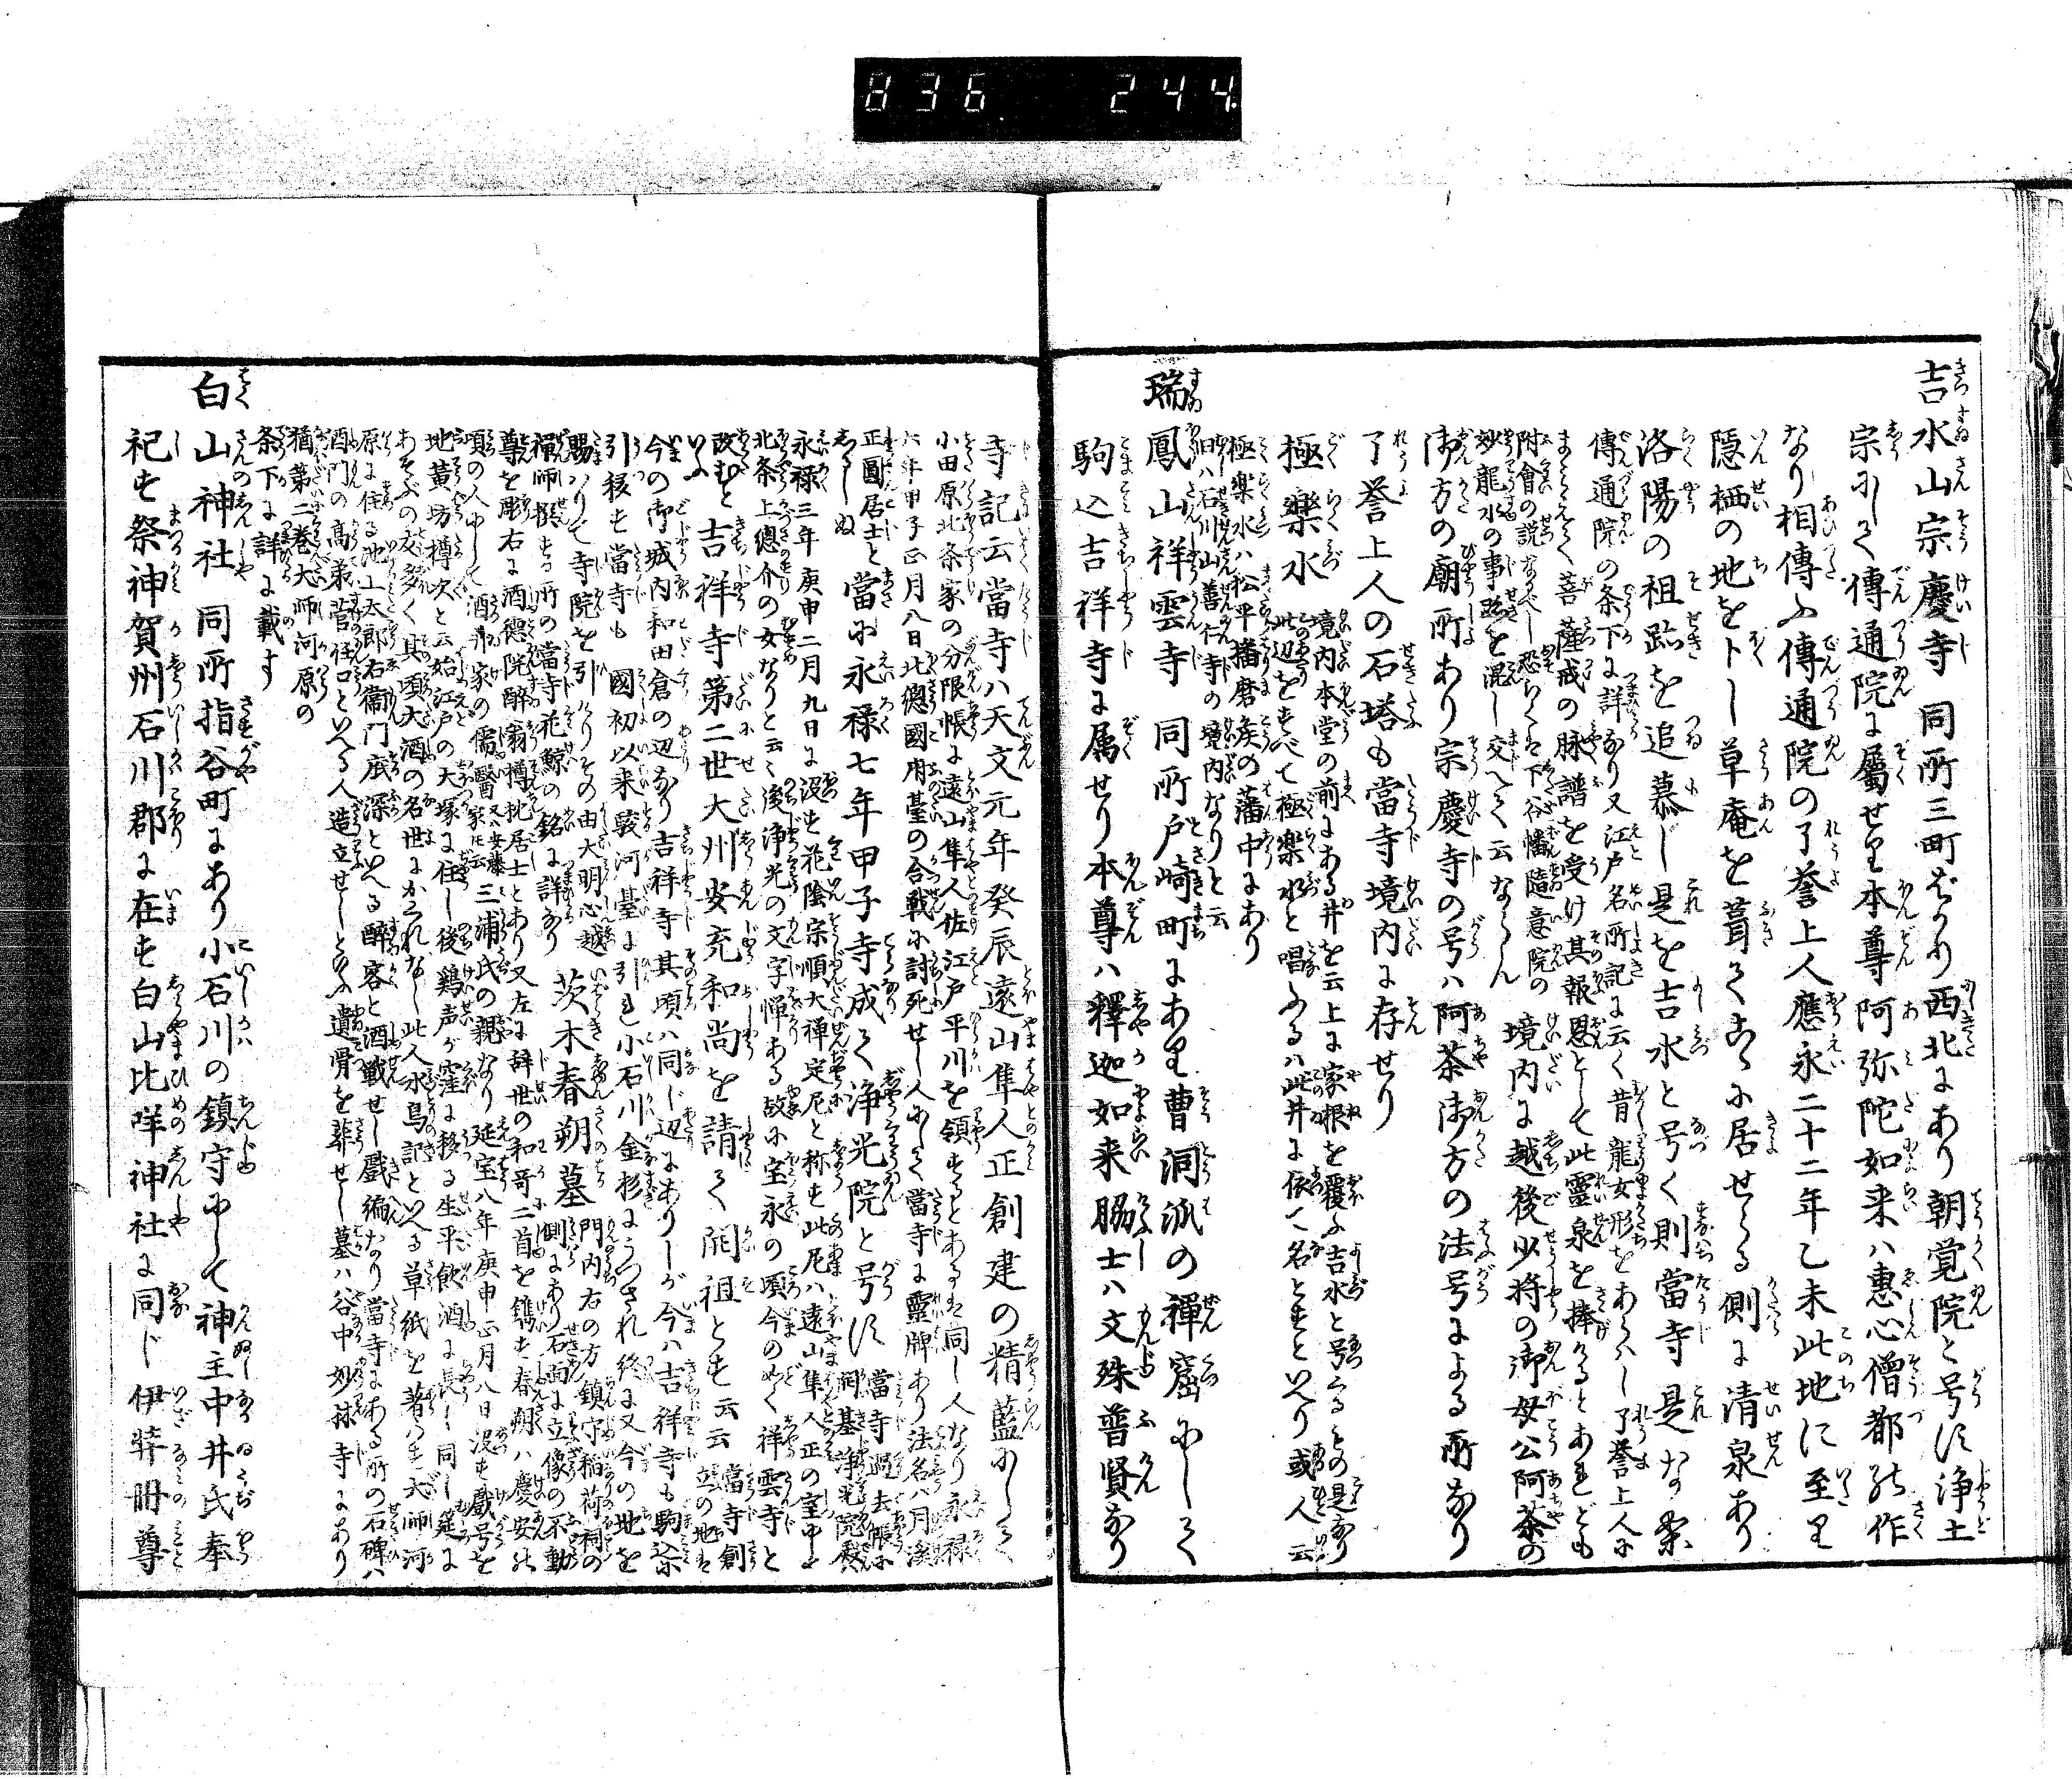 836 244
吉水山宗慶寺 同所三町ばかり西北にあり朝覚院と号す浄土
宗にして傳通院に屬せり本尊阿弥陀如来ハ惠心僧都の作
なり相傳ふ傳通院の了誉上人應永二十二年乙未此地に至り
隠栖の地を卜し草庵を葺てこゝに居せらる側に清泉あり
洛陽の祖跡を追慕し是を吉水と号く則當寺是なり案
傳通院の条下に詳なり又江戸名所記に云く昔龍女形をあらハし了誉上人に
まミえて菩薩戒の脉譜を受け其報恩として此靈泉を捧くるとあれども
附會の説なるべし恐らくは下谷幡随意院の
妙龍水の事跡を混し交へて云ならん
境内に越後少将の御母公阿茶の
御方の廟所あり宗慶寺の号ハ阿茶御方の法号による所なり
了誉上人の石塔も當寺境内に存せり
極樂水 境内本堂の前にある井を云上に家根を覆ふ吉水と号くるもの是なり
此辺をすべて極樂水と唱ふるハ此井に依て名とすといへり或人云
極樂水ハ松平播磨矦の藩中にあり
旧ハ石川山善仁寺の境内なりと云
瑞鳳山祥雲寺 同所戸崎町にあり曹洞派の禪窟にして
駒込吉祥寺に属せり本尊ハ釋迦如来脇士ハ文殊普賢なり
寺記云當寺ハ天文元年癸辰遠山隼人正創建の精藍にして
小田原北条家の分限帳に遠山隼人佐江戸平川を領するとあるは同し人なり永禄
六年甲子正月八日北總國府䑓の合戰に討死せし人にて當寺に靈牌あり法名ハ月溪
正圓居士と
しるしぬ
當に永禄七年甲子寺成て浄光院と号す
當寺過去帳に
開基浄光院殿
永禄三年庚申二月九日に没す花陰宗順大禅定尼と称す此尼ハ遠山隼人正の室中に
北条上總介の女なりと云々後浄光の文字憚ある故に宝永の頃今のごとく祥雲寺と
改むと
いふ
吉祥寺第二世大州安充和尚を請て開祖とす云云
當寺創
立の地は
今の御城内和田倉の辺なり吉祥寺其頃ハ同じ辺にありしが今ハ吉祥寺も駒込に
引移す當寺も國初以来駿河䑓に引れ小石川金杉にうつされ終に又今の地を
賜ハりて寺院を引けりその由大明心越
禅師撰する所の當寺花鯨の銘に詳なり
茨木春朔墓 門内右の方鎮守稲荷祠の
側にあり石面に立像の不動
尊を彫右に酒德院酔翁樽枕居士とあり又左に辞世の和哥二首を鐫す春朔ハ慶安の
頃の人にして酒井家の儒醫又ハ安藤家とも云三浦氏の親なり延宝八年庚申正月八日没す戯号を
地黄坊樽次と云始江戸の大塚に住し後鶏声が窪に移る生平飲酒に長し同し筵に
あそぶの友多く其頃大酒の名世にかくれなし此人水鳥記といへる草紙を著ハす大師河
原に住る池上太郎右衞門底深といへる酔客と酒戰せし戯編なり當寺にある所の石碑ハ
酒門の髙弟菅任口といへる人造立せしとなり遺骨を葬せし墓ハ谷中妙林寺にあり
猶第二巻大師河原の
条下に詳に載す
白山神社 同所指谷町にあり小石川の鎮守にして神主中井氏奉
祀す祭神賀州石川郡に在す白山比咩神社に同じ伊弉冊尊